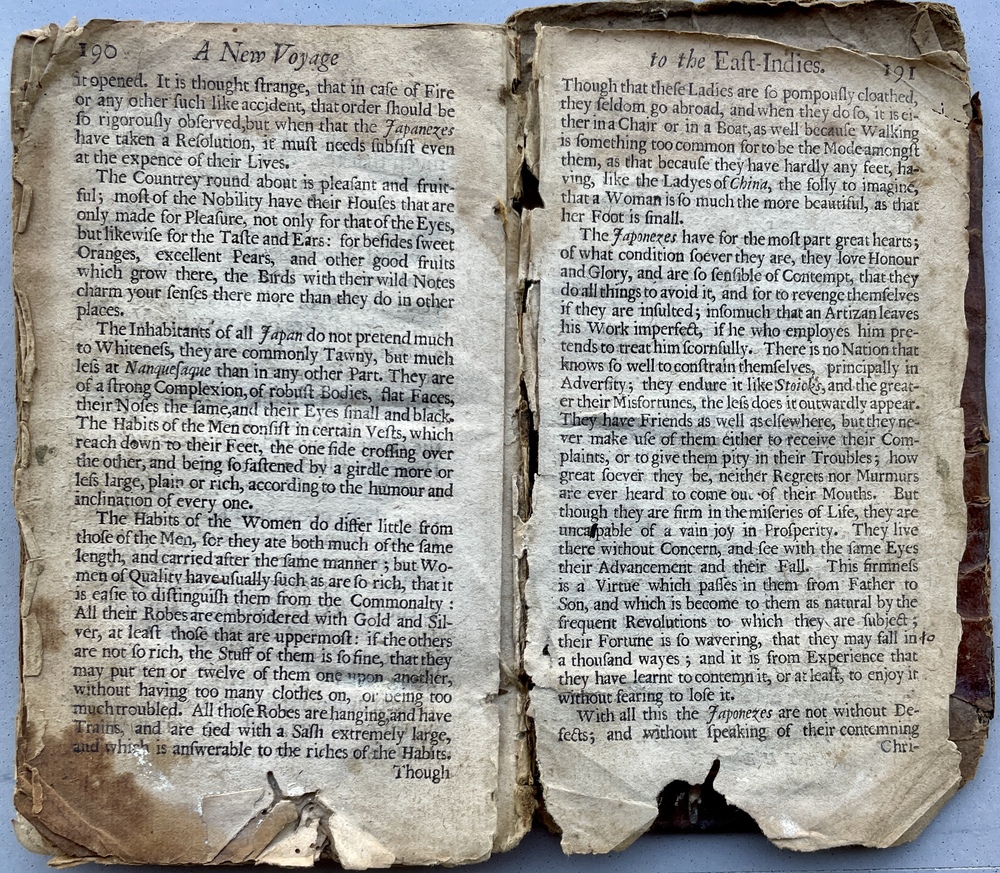 190 A New Voyage
it opened. It is thought ſtrange, that in caſe of Fire
or any other ſuch like accident, that order ſhould be
ſo rigorouſly obſerved, but when that the Japanezes
have taken a Reſolution, it muſt needs ſubſiſt even
at the expence of their Lives.
The Countrey round about is pleaſant and fruit-
ful; moſt of the Nobility have their Houſes that are
only made for Pleaſure, not only for that of the Eyes,
but likewiſe for the Taſte and Ears: for beſides ſweet
Oranges, excellent Pears, and other good fruits
which grow there, the Birds with their wild Notes
charm your ſenſes there more than they do in other
places.
The Inhabitants of all Japan do not pretend much
to Whiteneſs, they are commonly Tawny, but much
leſs at Nanqueſaque than in any other Part. They are
of a ſtrong Complexion, of robuſt Bodies, flat Faces,
their Noſes the ſame, and their Eyes ſmall and black.
The Habits of the Men conſiſt in certain Veſts, which
reach down to their Feet, the one ſide croſſing over
the other, and being ſo faſtened by a girdle more or
leſs large, plain or rich, according to the humour and
inclination of every one.
The Habits of the Women do differ little from
thoſe of the Men, for they are both much of the ſame
length, and carried after the ſame manner; but Wo-
men of Quality have uſually ſuch as are ſo rich, that it
is eaſie to diſtinguiſh them from the Commonalty:
All their Robes are embroidered with Gold and Sil-
ver, at leaſt thoſe that are uppermoſt: if the others
are not ſo rich, the Stuff of them is ſo fine, that they
may put ten or twelve of them one upon another,
without having too many clothes on, or being too
much troubled. All thoſe Robes are hanging, and have
Trains, and are tied with a Saſh extremely large,
and which is anſwerable to the riches of the Habits.
Though
to the Eaſt-Indies. 191
Though that theſe Ladies are ſo pompouſly cloathed,
they ſeldom go abroad, and when they do ſo, it is ei-
ther in a Chair or in a Boat, as well becauſe Walking
is ſomething too common for to be the Mode amongſt
them, as that becauſe they have hardly any feet, ha-
ving, like the Ladyes of China, the folly to imagine,
that a Woman is ſo much the more beautiful, as that
her Foot is ſmall.
The Japonezes have for the moſt part great hearts;
of what condition ſoever they are, they love Honour
and Glory, and are ſo ſenſible of Contempt, that they
do all things to avoid it, and for to revenge themſelves
if they are inſulted; inſomuch that an Artizan leaves
his Work imperfect, if he who employes him pre-
tends to treat him ſcornfully. There is no Nation that
knows ſo well to conſtrain themſelves, principally in
Adverſity; they endure it like Stoicks, and the great-
er their Misfortunes, the leſs does it outwardly appear.
They have Friends as well as elſewhere, but they ne-
ver make uſe of them either to receive their Com-
plaints, or to give them pity in their Troubles; how
great ſoever they be, neither Regrets nor Murmurs
are ever heard to come out of their Mouths. But
though they are firm in the miſeries of Life, they are
uncapable of a vain joy in Proſperity. They live
there without Concern, and ſee with the ſame Eyes
their Advancement and their Fall. This firmneſs
is a Virtue which paſſes in them from Father to
Son, and which is become to them as natural by the
frequent Revolutions to which they are ſubject;
their Fortune is ſo wavering, that they may fall in to
a thouſand wayes; and it is from Experience that
they have learnt to contemn it, or at leaſt, to enjoy it
without fearing to loſe it.
With all this the Japonezes are not without De-
fects; and without ſpeaking of their contemning
Chri-